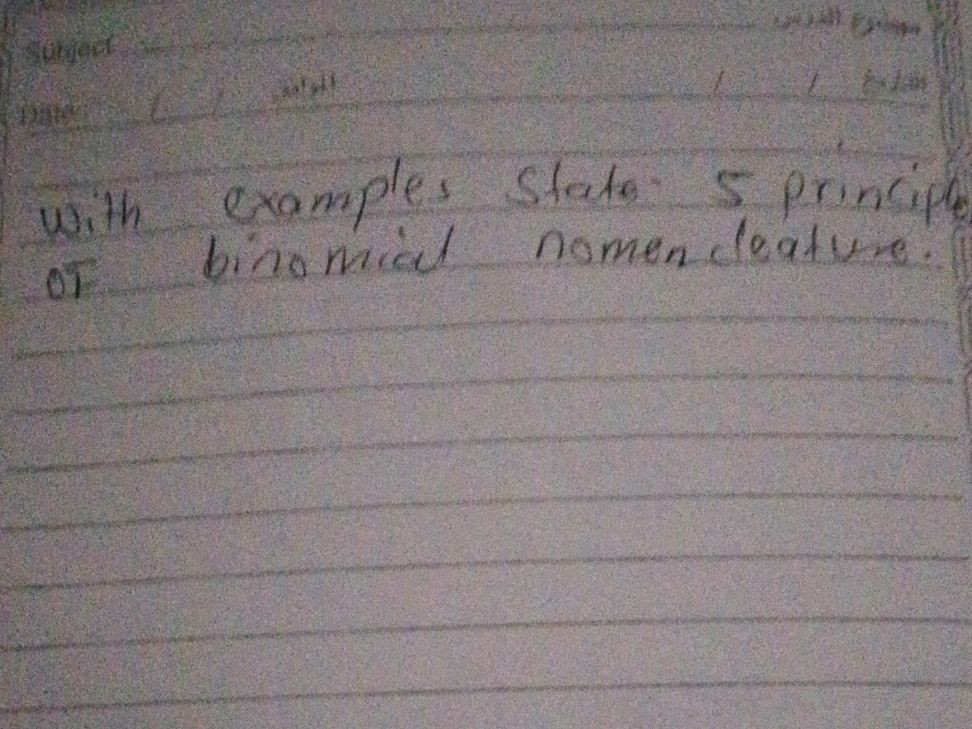 Subject موضوع الدرس
Date / / الموافق / / التاريخ
with examples State 5 principle
of binomial nomencleature.